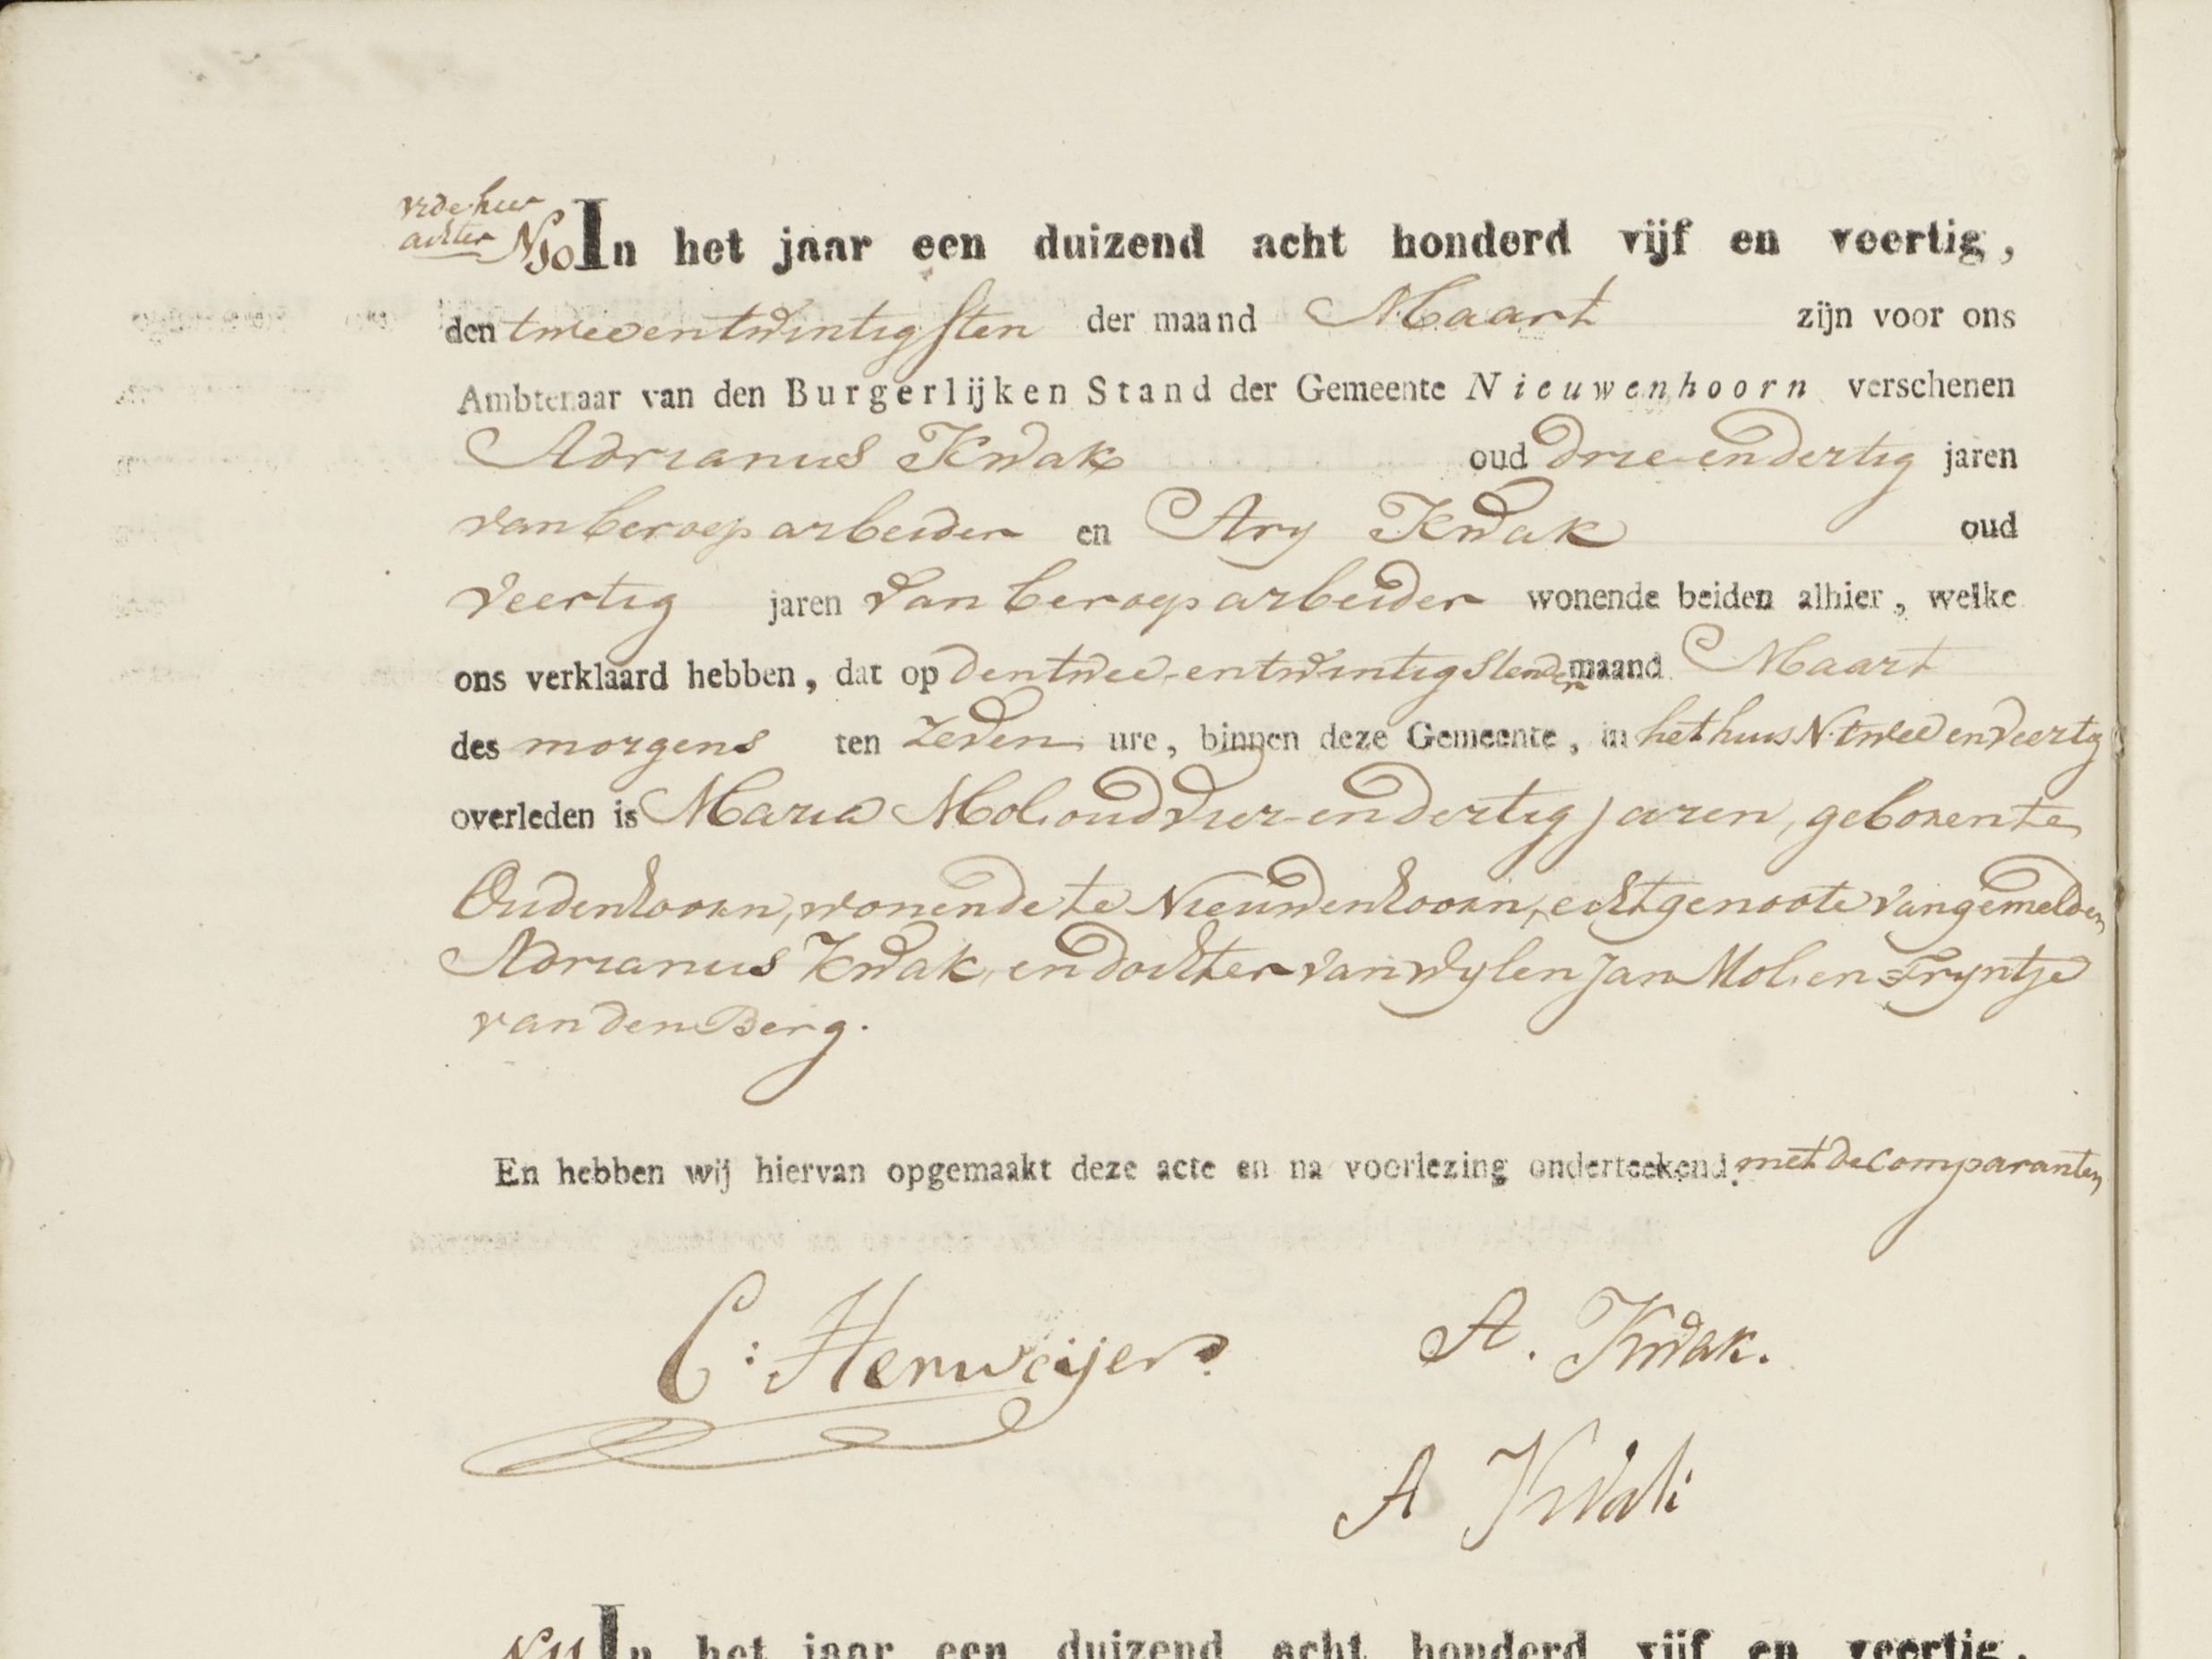 vide hier
achter N10 In het jaar een duizend acht honderd vijf en veertig,
den tweeentwintigsten der maand Maart zijn voor ons
Ambtenaar van den Burgerlijken Stand der Gemeente Nieuwenhoorn verschenen
Adrianus Kwak oud drie-en dertig jaren
van beroep arbeider en Ary Kwak oud
veertig jaren van beroep arbeider wonende beiden alhier, welke
ons verklaard hebben, dat op den twee-entwintigsten der maand Maart
des morgens ten zeven ure, binnen deze Gemeente, in het huis N. twee en veertig
overleden is Maria Mol. oud vier-en dertig jaren, geboren te
Oudenhoorn, wonende te Nieuwenhoorn, echtgenoote van gemelden
Adrianus Kwak, en dochter van wylen Jan Mol. en Tryntje
van den Berg.
En hebben wij hiervan opgemaakt deze acte en na voorlezing onderteekend. met de Comparanten
C: Herweijer. A. Kwak.
A Kwak
N11 In het jaar een duizend acht honderd vijf en veertig,